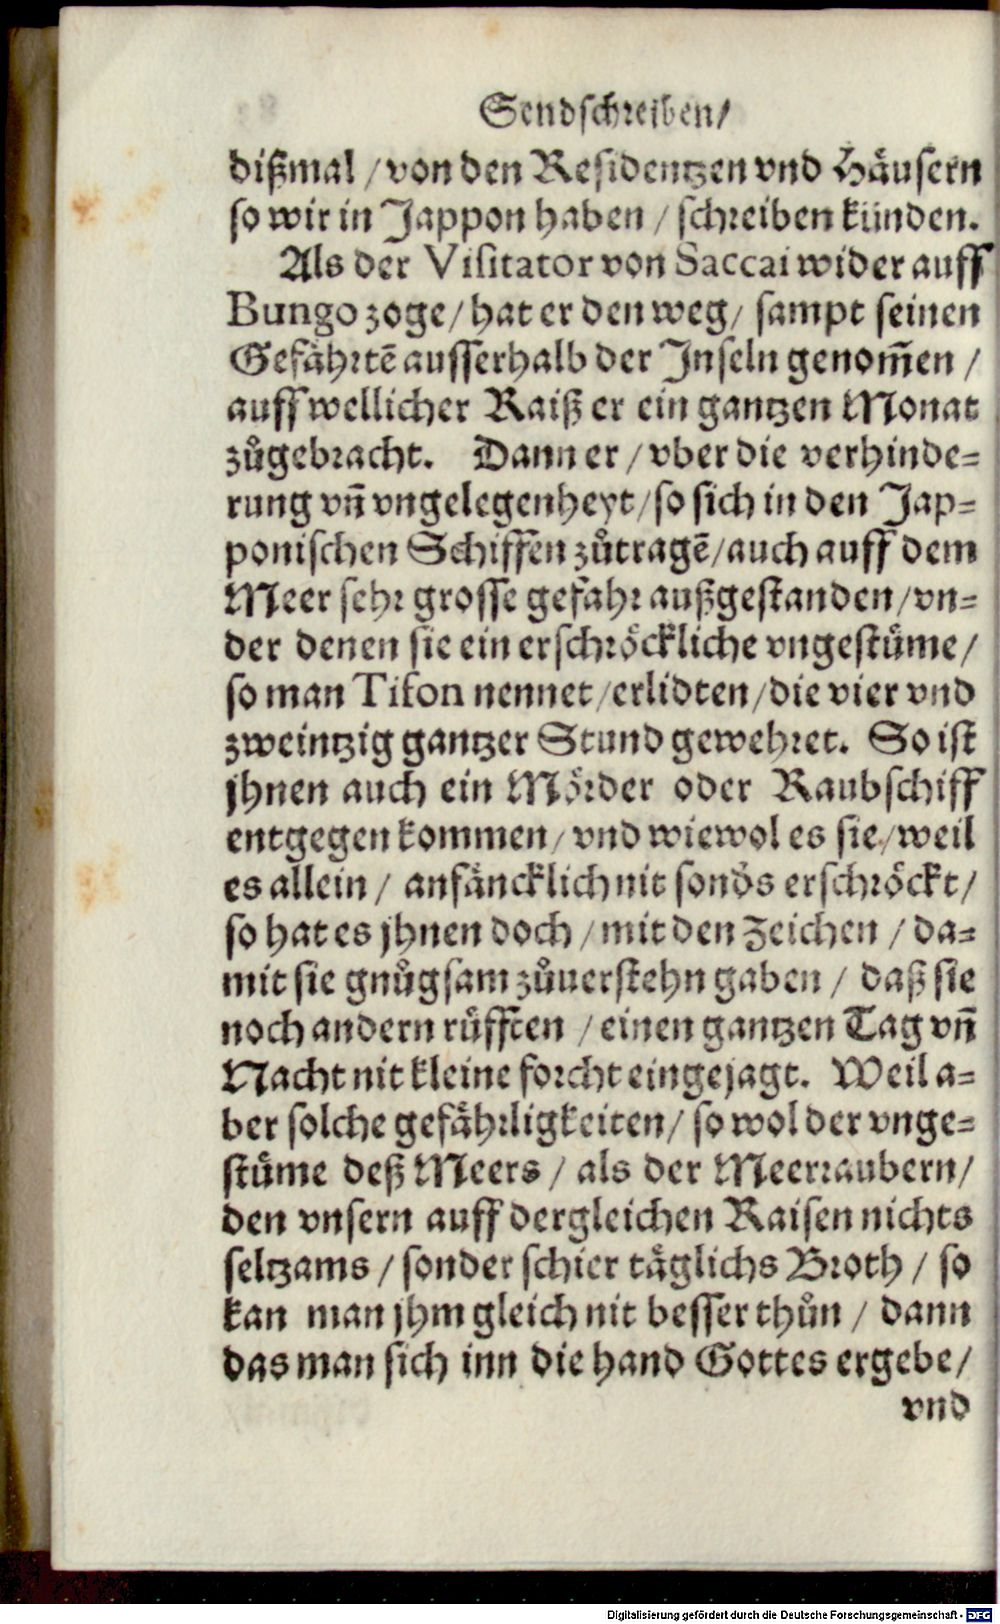 Sendschreiben/
dißmal / von den Residentzen vnd Häusern
so wir in Jappon haben / schreiben künden.
Als der Visitator von Saccai wider auff
Bungo zoge / hat er den weg / sampt seinen
Gefährtẽ ausserhalb der Inseln genom̃en /
auff wellicher Raiß er ein gantzen Monat
zůgebracht. Dann er / vber die verhinde-
rung vñ vngelegenheyt / so sich in den Jap-
ponischen Schiffen zůtragẽ / auch auff dem
Meer sehr grosse gefahr außgestanden / vn-
der denen sie ein erschröckliche vngestüme /
so man Tifon nennet / erlidten / die vier vnd
zweintzig gantzer Stund gewehret. So ist
jhnen auch ein Mörder oder Raubschiff
entgegen kommen / vnd wiewol es sie / weil
es allein / anfäncklich nit sonđs erschröckt /
so hat es jhnen doch / mit den Zeichen / da-
mit sie gnůgsam zůuerstehn gaben / daß sie
noch andern růfften / einen gantzen Tag vñ
Nacht nit kleine forcht eingejagt. Weil a-
ber solche gefährligkeiten / so wol der vnge-
stüme deß Meers / als der Meerraubern /
den vnsern auff dergleichen Raisen nichts
seltzams / sonder schier täglichs Broth / so
kan man jhm gleich nit besser thůn / dann
das man sich inn die hand Gottes ergebe /
vnd
Digitalisierung gefördert durch die Deutsche Forschungsgemeinschaft - DFG